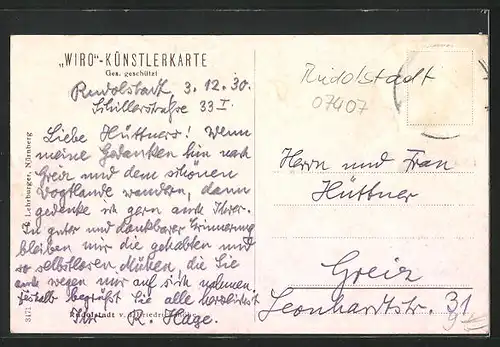 „WIRO"-KÜNSTLERKARTE
Ges. geschützt
Rudolstadt, 3.12.30.
Schillerstraße 33 I.
Liebe Hüttners! Wenn
meine Gedanken hin nach
Greiz und dem schönen
Vogtlande wandern, dann
gedenke ich gern auch Ihrer.
In guter und dankbarer Erinnerung
bleiben mir die gehabten und
so selbstlosen Mühen, die Sie
auch wegen mir auf sich nahmen.
Deshalb begrüßt Sie alle herzlichst
Ihr R. Hage.
Rudolstadt v.
Lehrburger, Nürnberg
3471
Rudolstadt
07407
Herrn und Frau
Hüttner
Greiz
Leonhardtstr. 31